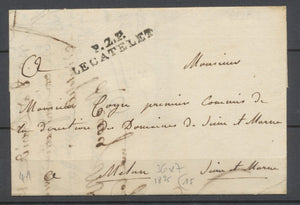 P.2.P.
LECATELET
A
Monsieur
Monsieur Coyer premier Commis de
la direction des Domaines de Seine et Marne
a Melun Seine et Marne